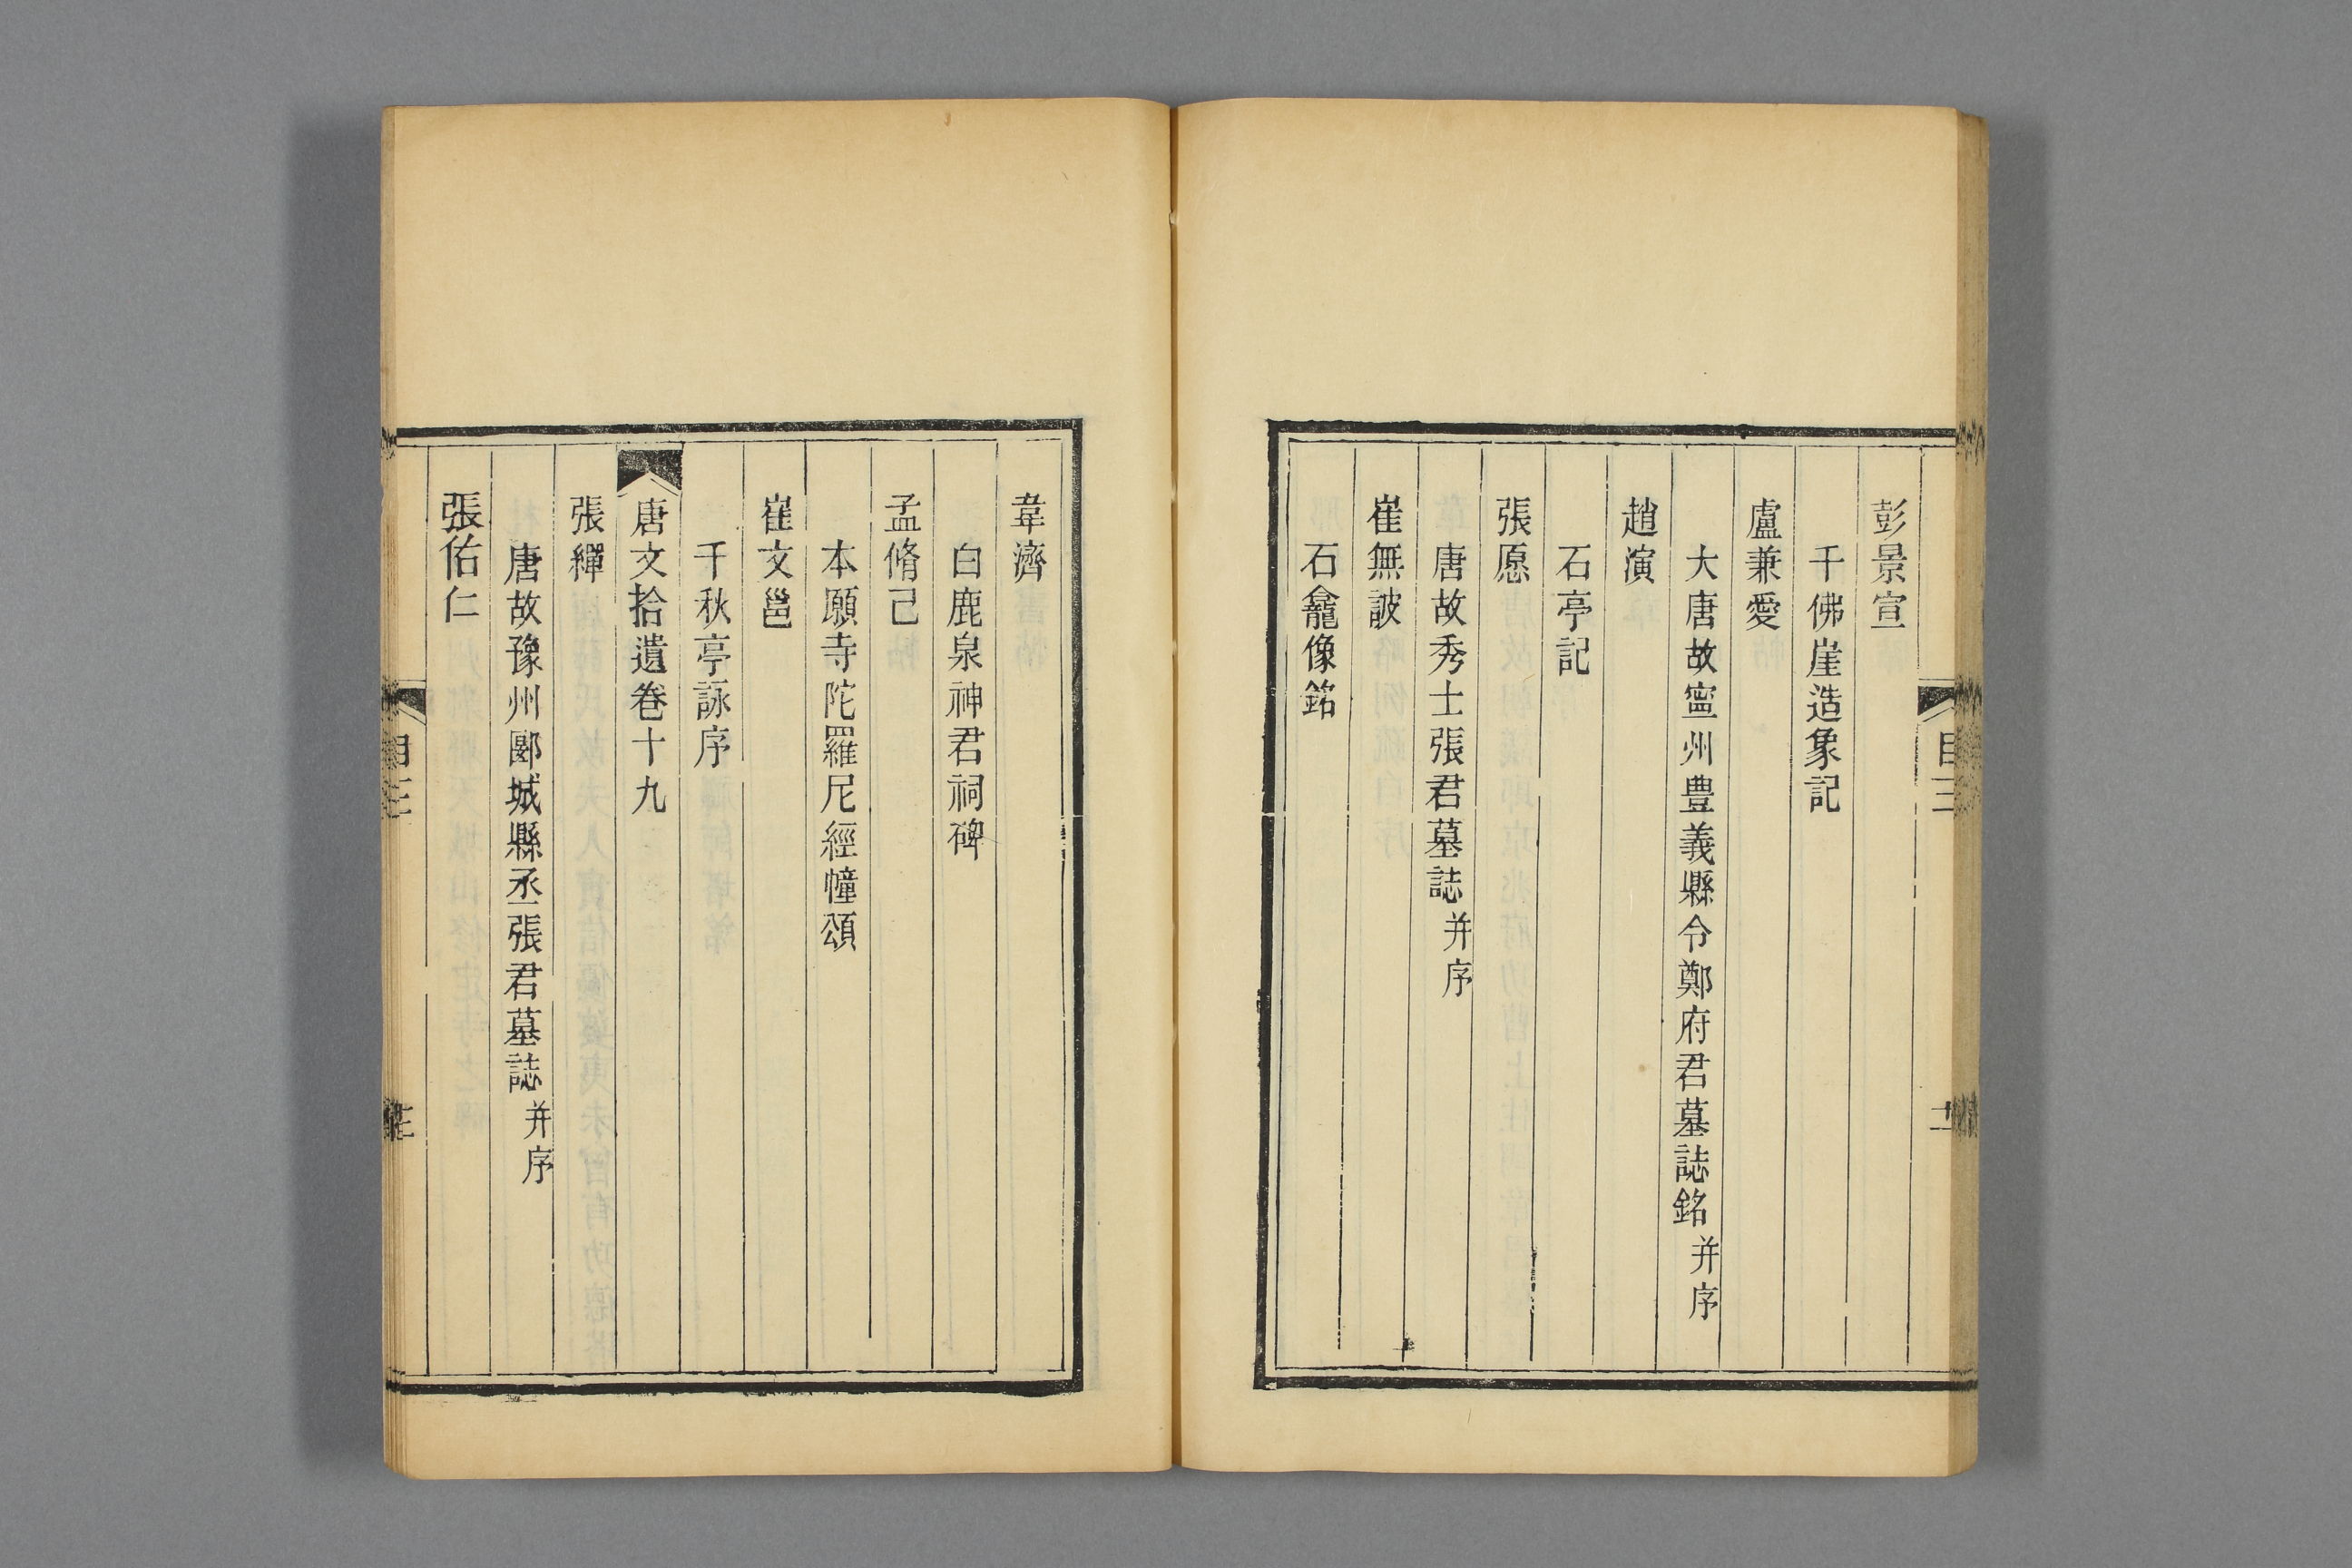 彭景宣
千佛崖造象記
盧兼愛
大唐故寧州豊義縣令鄭府君墓誌銘并序
趙演
石亭記
張愿
唐故秀士張君墓誌并序
崔無詖
石龕像銘
韋濟
白鹿泉神君祠碑
孟脩己
本願寺陀羅尼經幢頌
崔文邕
千秋亭詠序
唐文拾遺卷十九
張繟
唐故豫州郾城縣丞張君墓誌并序
張佑仁
目三